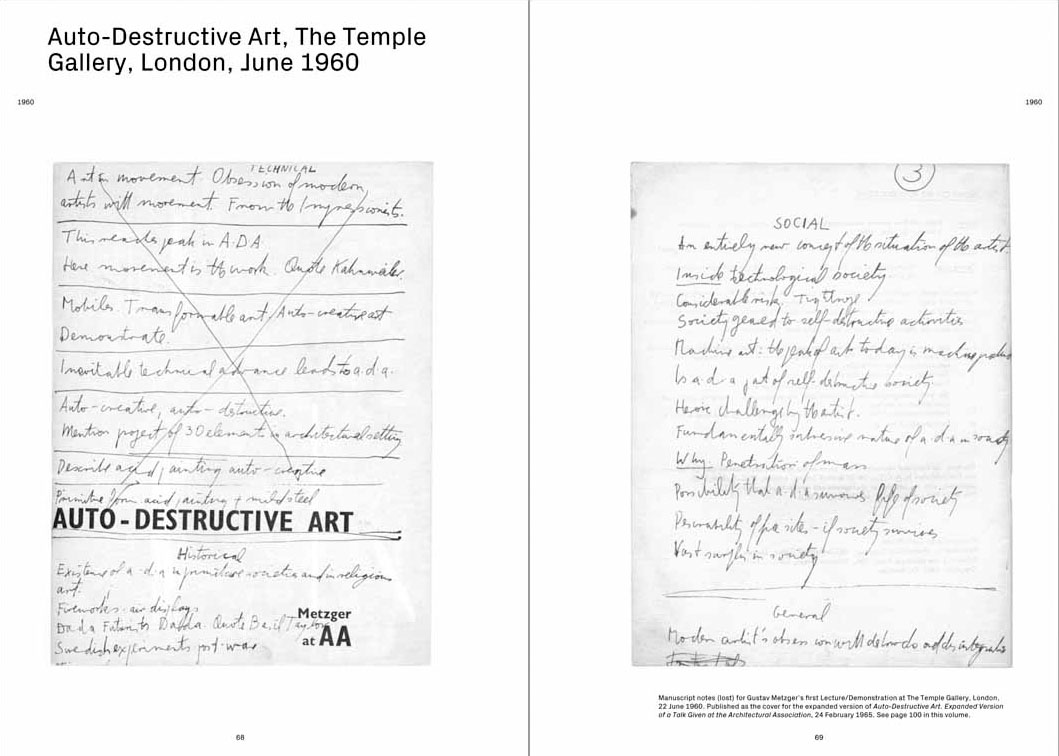 Auto-Destructive Art, The Temple
Gallery, London, June 1960
1960
TECHNICAL
Art in movement. Obsession of modern
artists with movement. From the Impressionists.
This reaches peak in A.D.A
Here movement is the work. Quote Kahnweiler.
Mobiles Transformable art, Auto-creative art
Demonstrate.
Inevitable technical advance leads to a.d.a.
Auto-creative, auto-destructive.
Mention project of 30 element in architectural setting
Describe acid painting auto-creative
Primitive form acid painting + mild steel
AUTO-DESTRUCTIVE ART
Historical
Existence of a-d-a in primitive societies and in religious
art.
Fireworks - air displays
Dada Futurists Dadda. Quote Basil Taylor
Swedish experiments post-war
Metzger
at AA
68
1960
3
SOCIAL
An entirely new concept of the situation of the artist.
Inside technological society
Considerable risk.
Society geared to self-destructive activities
Machine art: the peak of art today is machine
Is a-d-a part of self-destructive society.
Heroic challenge by the artist.
Fundamentally subversive nature of a-d-a in society
Why. Penetration of mass
Possibility that a-d-a survives life of society
Desirability of - if society survives
Vast surplus in society
General
Modern artist's obsession with
Manuscript notes (lost) for Gustav Metzger's first Lecture/Demonstration at The Temple Gallery, London,
22 June 1960. Published as the cover for the expanded version of Auto-Destructive Art. Expanded Version
of a Talk Given at the Architectural Association, 24 February 1965. See page 100 in this volume.
69